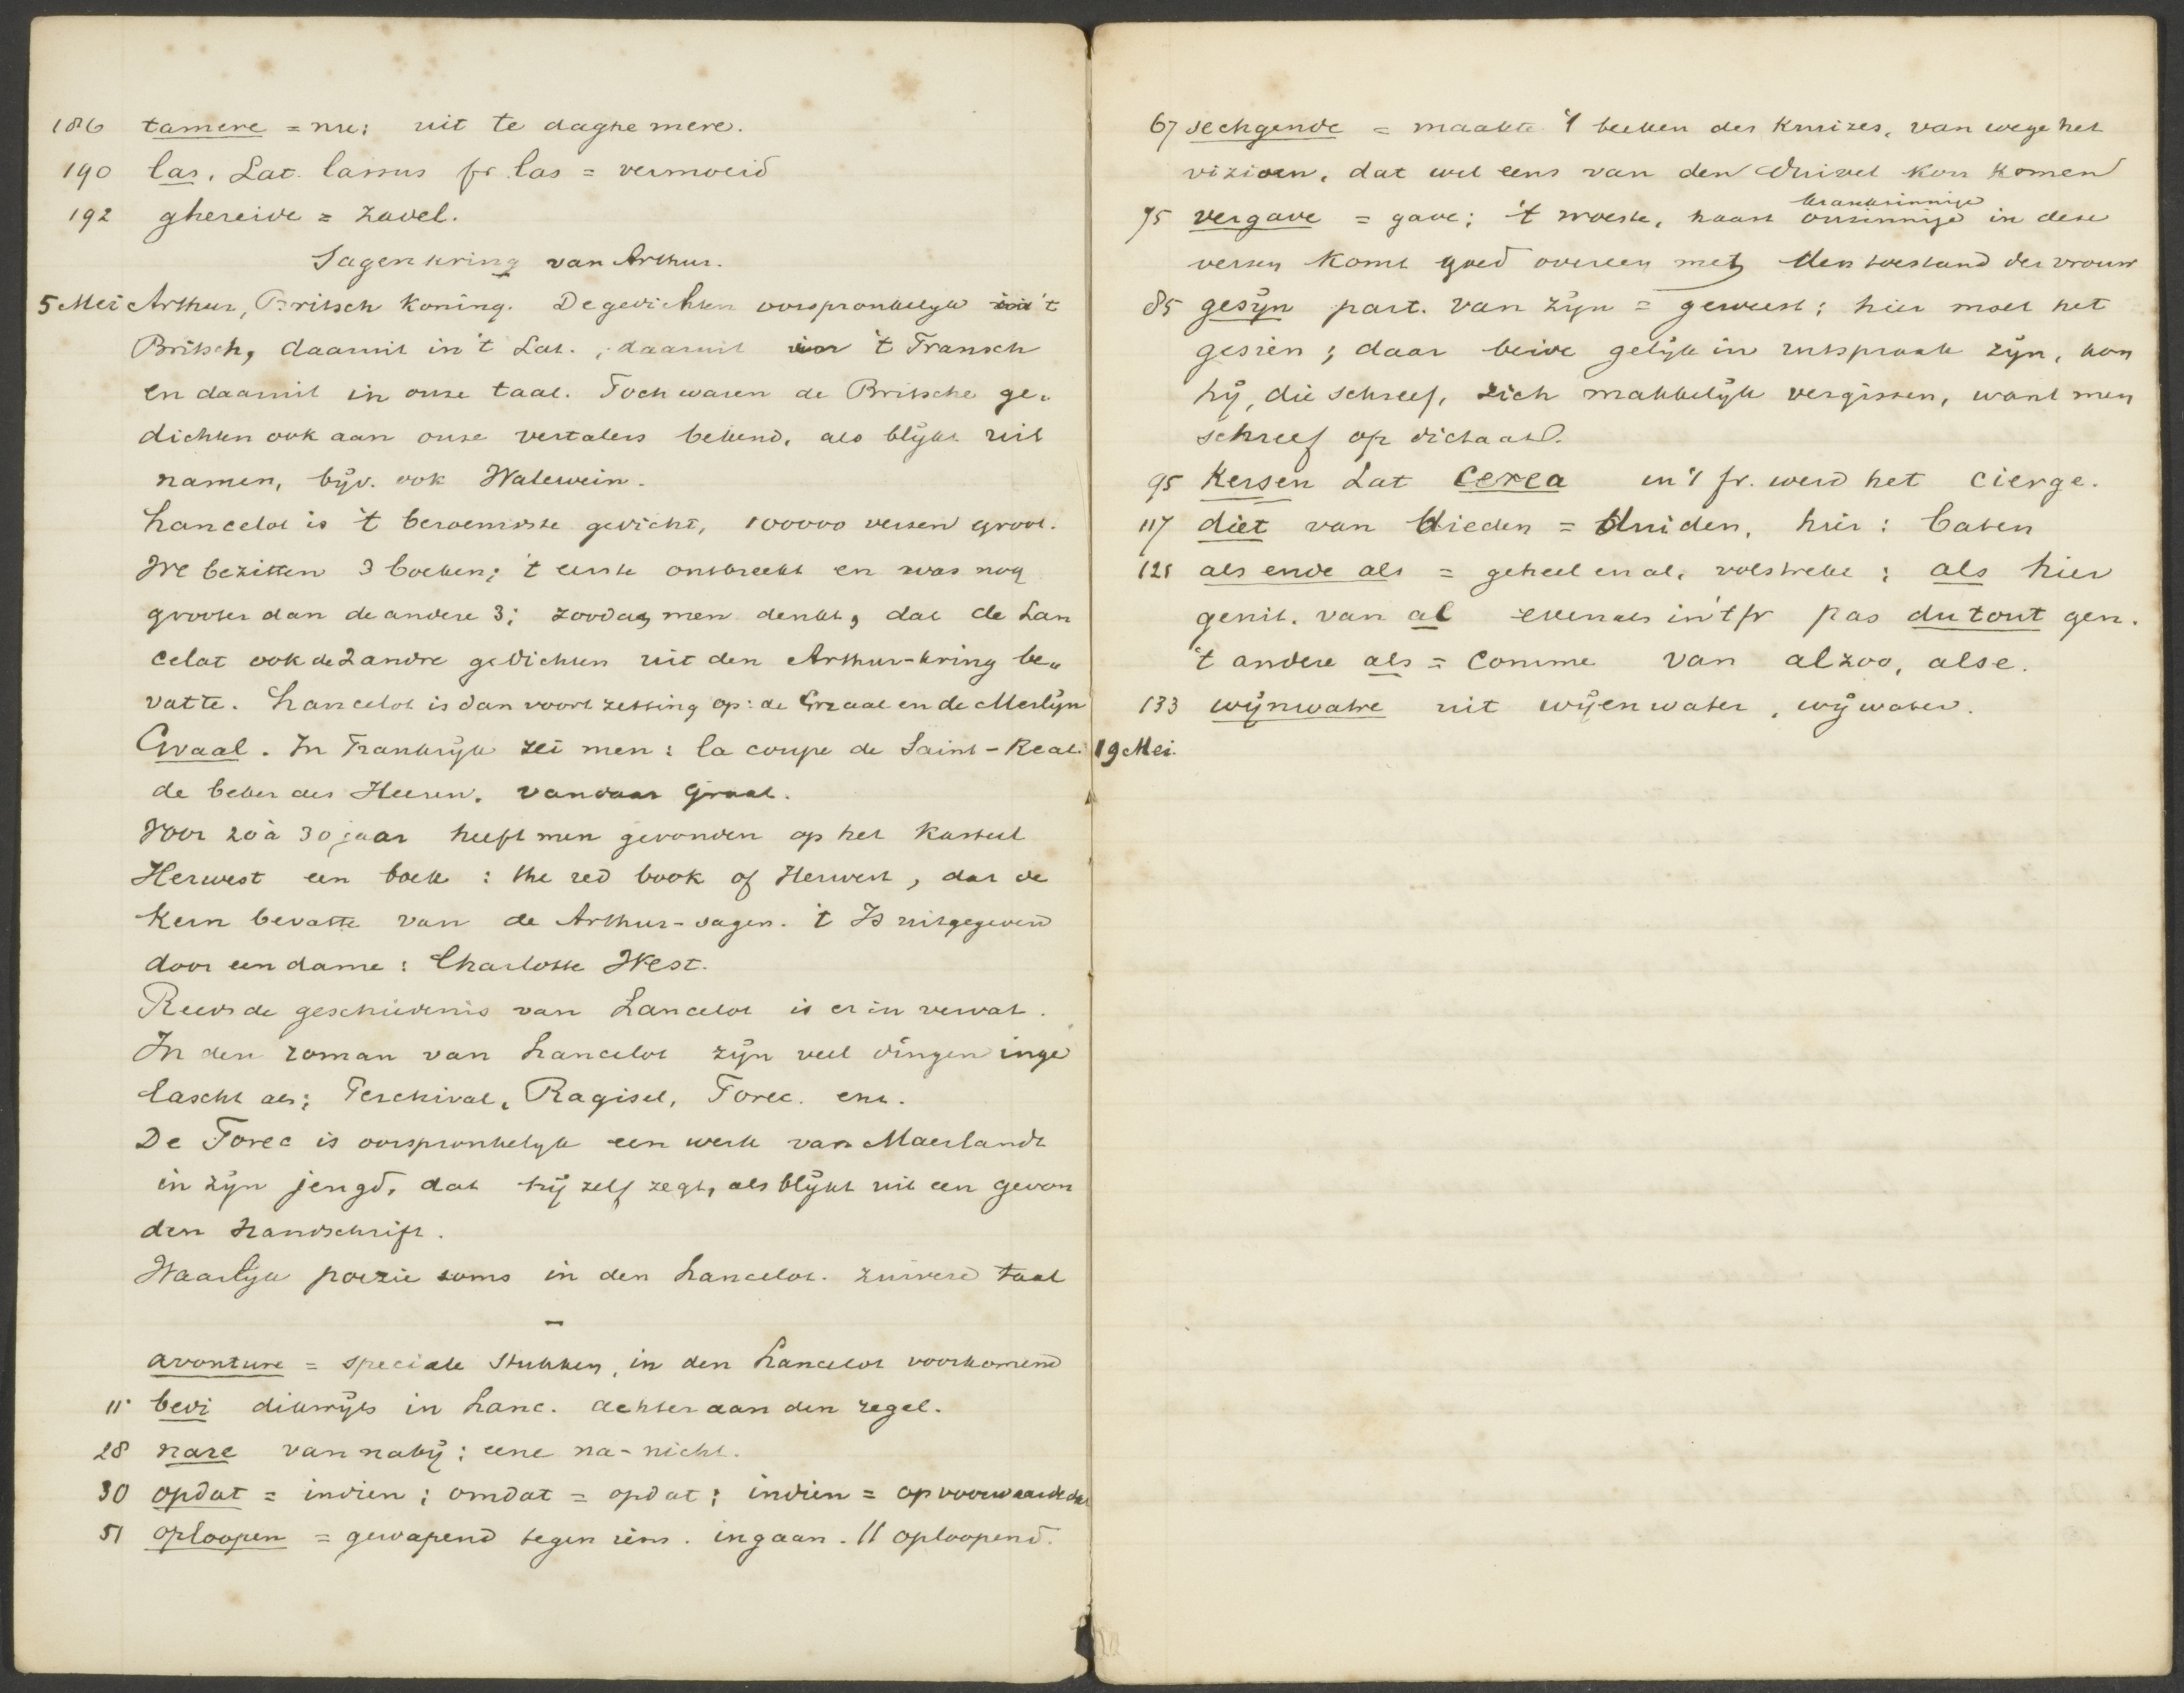 186 tamere = nu; uit te daghe mere.
190 las. Lat. lassus fr. las = vermoeid
192 ghereide = zadel.
Sagenkring van Arthur.
5 Mei Arthur, Britsch koning. De gedichten oorspronkelijk in 't
Britsch, daaruit in 't Lat., daaruit in 't Fransch
en daaruit in onze taal. Toch waren de Britsche ge-
dichten ook aan onze vertalers bekend, als blijkt uit
namen, bijv. ook Walewein.
Lancelot is 't beroemdste gedicht, 100000 verzen groot.
We bezitten 3 boeken; 't eerste ontbreekt en was nog
grooter dan de andere 3; zoodat men denkt, dat de Lan
celot ook de 2 andre gedichten uit den Arthur-kring be-
vatte. Lancelot is dan voortzetting op: de Graal en de Merlijn
Graal. In Frankrijk zei men: la coupe de Saint-Real
de beker des Heeren. vandaar Graal.
Voor 20 à 30 jaar heeft men gevonden op het kasteel
Herwest een boek: the red book of Herwest, dat de
kern bevatte van de Arthur-sagen. 't Is uitgegeven
door een dame: Charlotte West.
Reeds de geschiedenis van Lancelot is er in vervat.
In den roman van Lancelot zijn veel dingen inge
lascht als; Perchival, Ragisel, Torec. enz.
De Torec is oorspronkelijk een werk van Maerlandt
in zijn jeugd, dat hij zelf zegt, als blijkt uit een gevon
den handschrift.
Waarlijk poezie soms in den Lancelot. zuivere taal
—
avonture = speciale stukken, in den Lancelot voorkomend
11 bedi dikwijls in Lanc. achter aan den regel.
28 nare van nabij: eene na-nicht.
30 opdat = indien; omdat = opdat; indien = op voorwaarde dat
51 oploopen = gewapend tegen iem. ingaan. || oploopend.
67 sechgende = maakte 't teeken des kruizes, van wege het
vizioen, dat wel eens van den Duivel kon komen
krankzinnige
75 vergave = gave; 't woeste, haast onzinnige in deze
verzen komt goed overeen met den toestand der vrouw
85 gesijn part. van zijn = geweest; hier moet het
gesien; daar beide gelijk in uitspraak zijn, kon
hij, die schreef, zich makkelijk vergissen, want men
schreef op dictaat.
95 Kersen Lat cerea in 't fr. werd het cierge.
117 diet van dieden = duiden, hier: baten
121 als ende als = geheel en al, volstrekt; als hier
genit. van al evenals in 't fr pas du tout gen.
't andere als = comme van alzoo, alse.
133 wijnwatre uit wijenwater, wijwater.
19 Mei.